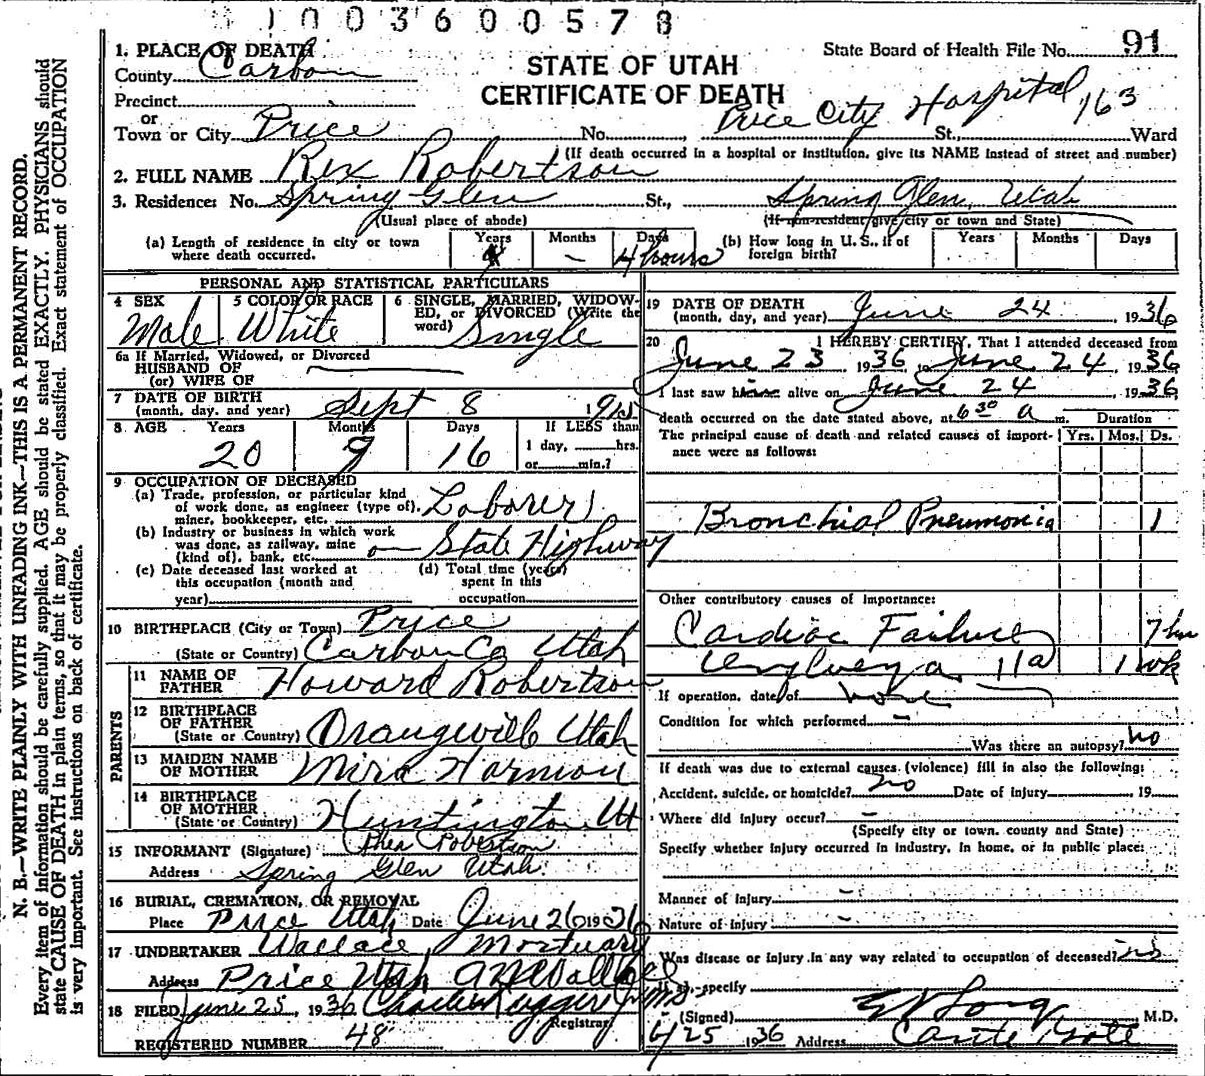 1003600578
1. PLACE OF DEATH
County Carbon
Precinct
or
Town or City Price No. Price City Hospital 163 St., Ward
(If death occurred in a hospital or institution, give its NAME instead of street and number)
State Board of Health File No. 91
STATE OF UTAH
CERTIFICATE OF DEATH
2. FULL NAME Rex Robertson
3. Residence: No. Spring Glen St., Spring Glen, Utah
(Usual place of abode) (If non-resident give city or town and State)
(a) Length of residence in city or town where death occurred. Years Months – Days 4 hours
(b) How long in U. S., if of foreign birth? Years Months Days
PERSONAL AND STATISTICAL PARTICULARS
4 SEX Male
5 COLOR OR RACE White
6 SINGLE, MARRIED, WIDOWED, or DIVORCED (Write the word) Single
6a If Married, Widowed, or Divorced
HUSBAND OF
(or) WIFE OF
7 DATE OF BIRTH
(month, day, and year) Sept 8 1915
8 AGE Years 20 Months 9 Days 16 If LESS than 1 day, hrs. or min.?
9 OCCUPATION OF DECEASED
(a) Trade, profession, or particular kind of work done, as engineer (type of), miner, bookkeeper, etc. Laborer
(b) Industry or business in which work was done, as railway, mine (kind of), bank, etc. on State Highway
(c) Date deceased last worked at this occupation (month and year)
(d) Total time (years) spent in this occupation
10 BIRTHPLACE (City or Town) Price
(State or Country) Carbon Co Utah
PARENTS
11 NAME OF FATHER Howard Robertson
12 BIRTHPLACE OF FATHER
(State or Country) Orangeville Utah
13 MAIDEN NAME OF MOTHER Mira Harmon
14 BIRTHPLACE OF MOTHER
(State or Country) Huntington Ut
15 INFORMANT (Signature) Rhea Robertson
Address Spring Glen Utah
16 BURIAL, CREMATION, OR REMOVAL
Place Price Utah Date June 26 1936
17 UNDERTAKER Wallace Mortuary
Address Price Utah
18 FILED June 25, 1936
Registrar
REGISTERED NUMBER 48
19 DATE OF DEATH
(month, day, and year) June 24 1936
20 I HEREBY CERTIFY, That I attended deceased from
June 23 1936 June 24 1936
I last saw him alive on June 24 1936
death occurred on the date stated above, at 6 30 a m. Duration
The principal cause of death and related causes of importance were as follows: Yrs. Mos. Ds.
Bronchial Pneumonia 1
Other contributory causes of importance:
Cardiac Failure 7 hrs
11a 1 wk
If operation, date of none
Condition for which performed –
Was there an autopsy? no
If death was due to external causes (violence) fill in also the following:
Accident, suicide, or homicide? no Date of injury 19
Where did injury occur? –
(Specify city or town, county and State)
Specify whether injury occurred in industry, in home, or in public place:
Manner of injury –
Nature of injury –
Was disease or injury in any way related to occupation of deceased? no
If so, specify
(Signed) M.D.
6/25 1936 Address
N. B.—WRITE PLAINLY WITH UNFADING INK—THIS IS A PERMANENT RECORD.
Every item of information should be carefully supplied. AGE should be stated EXACTLY. PHYSICIANS should
state CAUSE OF DEATH in plain terms, so that it may be properly classified. Exact statement of OCCUPATION
is very important. See instructions on back of certificate.